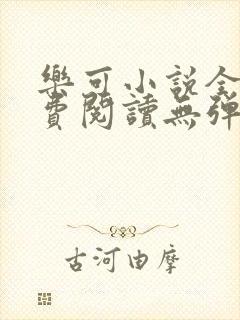 樂可小說全
費閱讀無彈
古河由摩